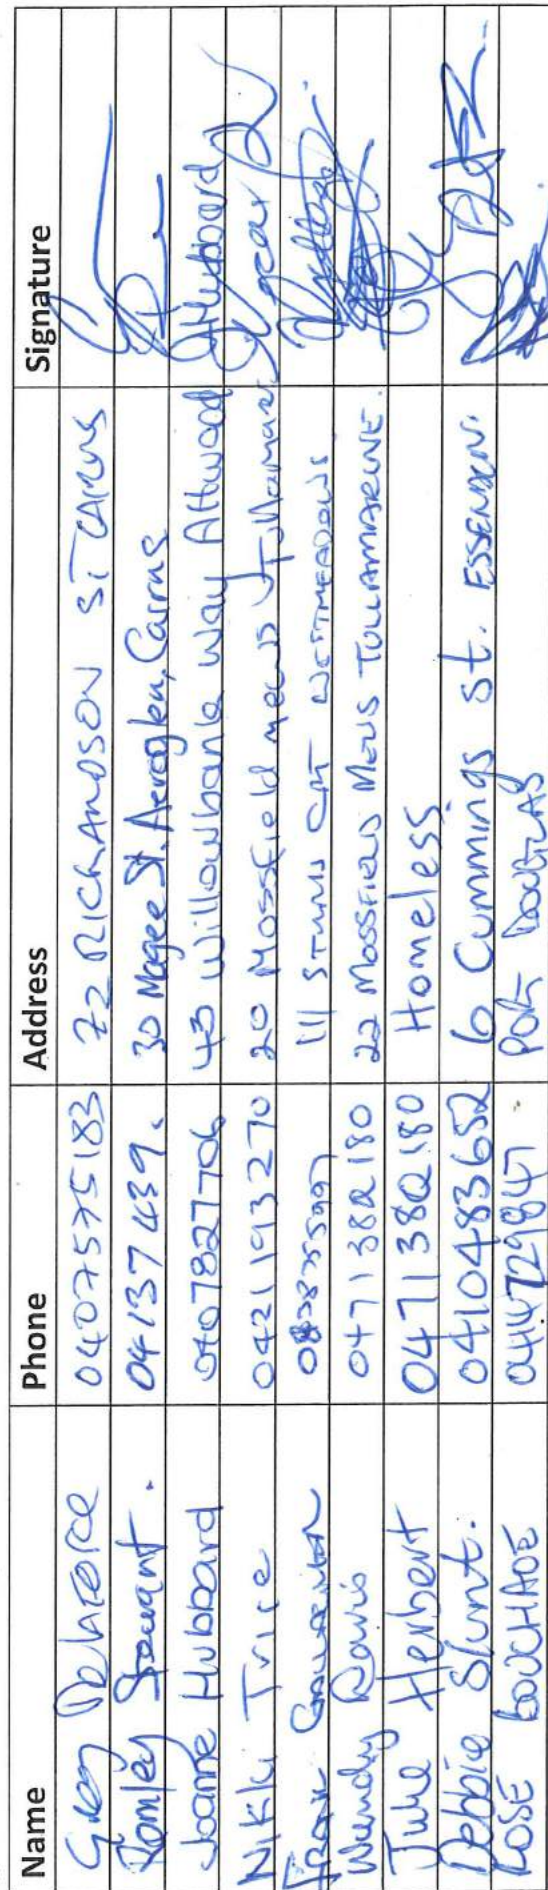 Name Phone Address Signature
Greg Delaforce 0407575183 72 RICHARDSON ST CAIRNS
Romley 04137439. 30 Magee St. Aeroglen, Cairns
Joanne Hubbard 0407827706 43 Willowbank Way Attwood JHubbard
Nikki Trice 0421193270 20 Mossfield mews Tullamarine
Frank 111 CRT WESTMEADOWS
Wendy Davis 0471382180 22 MOSSFIELD MEWS TULLAMARINE.
Julie Herbert 0471382180 Homeless
Debbie Slunt. 0410483652 6 Cummings st. ESSENDON.
ROSE BOUCHADE 0414729847 PORT DOUGLAS